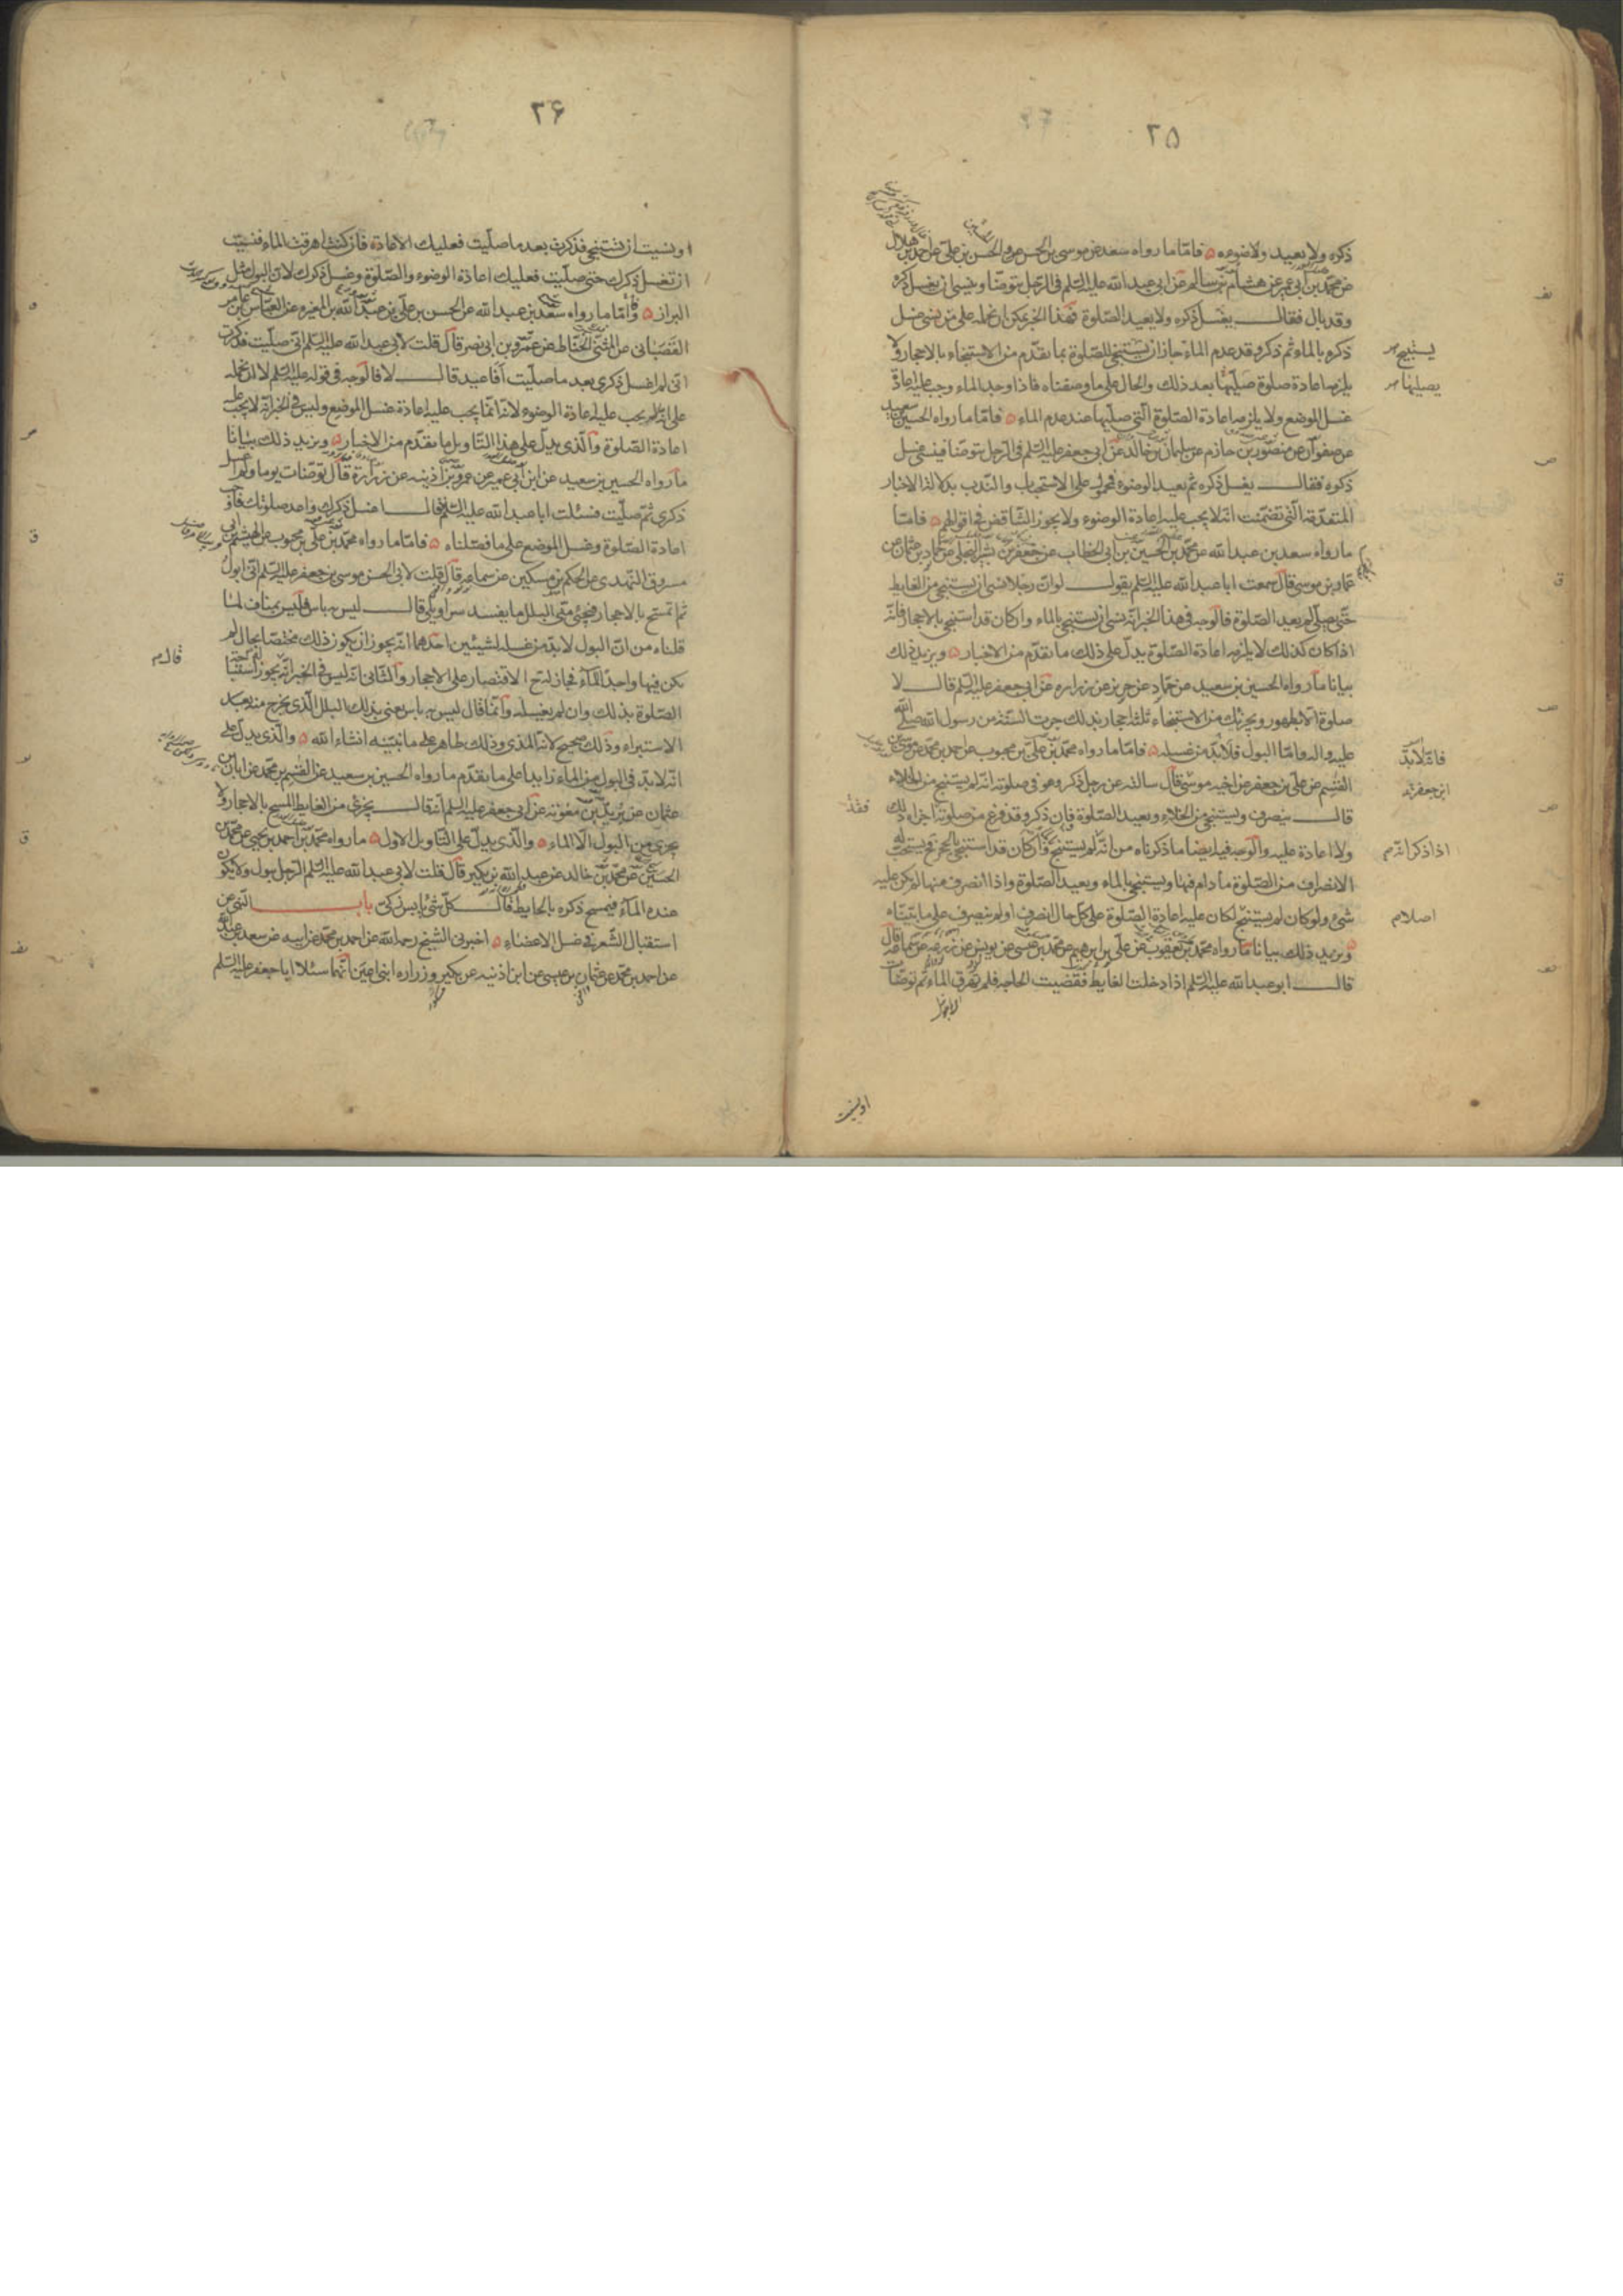 ٢٥
ذكره ولا يعيد ولا ضوءه فامّا ما رواه سعد عن موسى بن الحسن والحسن بن علي عن احمد بن هلال
عن محمّد بن ابي عمير عن هشام بن سالم عن ابي عبد الله عليه السّلم في الرّجل يتوضّا وينسى ان يغسل ذكره
وقد بال فقال يغسل ذكره ولا يعيد الصّلوة فهذا الخبر يمكن ان نحمله على من نسى غسل
ذكره بالماء ثم ذكر وقد عدم الماء جاز ان يستنجي للصّلوة بما تقدّم من الاستنجاء بالاحجار ولا
يلزمه اعادة صلوة صلّيها بعد ذلك والحال على ما وصفناه فاذا وجد الماء وجب عليه اعادة
غسل الموضع ولا يلزمه اعادة الصّلوة الّتي صلّيها عند عدم الماء فامّا ما رواه الحسين بن سعيد
عن صفوان عن منصور بن حازم عن سليمان بن خالد عن ابي جعفر عليه السّلم في الرّجل يتوضّا فينسى غسل
ذكره فقال يغسل ذكره ثم يعيد الوضوء فمحمول على الاستحباب والنّدب بدلالة الاخبار
المتقدّمة الّتي تضمّنت انّه لا يجب عليه اعادة الوضوء ولا يجوز التّناقض في اقوالهم فامّا
ما رواه سعد بن عبد الله عن محمّد بن الحسين بن ابي الخطاب عن جعفر بن بشير البجلي عن حمّاد بن عثمان عن
عمّار بن موسى قال سمعت ابا عبد الله عليه السّلم يقول لو انّ رجلا نسى ان يستنجي من الغايط
حتّى يصلّي لم يعد الصّلوة فالوجه في هذا الخبر انّه نسى ان يستنجي بالماء وان كان قد استنجى بالاحجار فانّه
اذا كان كذلك لا يلزمه اعادة الصّلوة يدلّ على ذلك ما تقدّم من الاخبار ويزيد ذلك
بيانا ما رواه الحسين بن سعيد عن حمّاد عن حريز عن زراره عن ابي جعفر عليه السّلم قال لا
صلوة الّا بطهور ويجزئك من الاستنجاء ثلثة احجار بذلك جرت السّنّة من رسول الله صلّى الله
عليه واله وامّا البول فلا بدّ من غسله فامّا ما رواه محمّد بن علي بن محبوب عن احمد بن محمّد عن موسى بن
القسم عن علي بن جعفر عن اخيه موسى قال سالته عن رجل ذكر وهو في صلوته انّه لم يستنج من الخلاء
قال ينصرف ويستنجي من الخلاء ويعيد الصّلوة فان ذكر وقد فرغ من صلوته اجزاه ذلك
ولا اعادة عليه والوجه فيه ايضا ما ذكرناه من انّه لم يستنج وان كان قد استنجى بالحجر فيستحبّ له
الانصراف من الصّلوة ما دام فيها ويستنجي بالماء ويعيد الصّلوة واذا انصرف منها لم يكن عليه
شيء ولو كان لم يستنج لكان عليه اعادة الصّلوة على كلّ حال انصرف او لم ينصرف على ما بيّنّاه
ويزيد ذلك بيانا ما رواه محمّد بن يعقوب عن علي بن ابرهيم عن محمّد بن عيسى عن يونس عن زرعه عن سماعة قال
قال ابو عبد الله عليه السّلم اذا دخلت الغايط فقضيت الحاجة فلم تهرق الماء ثم توضّات
او نسيت
يستنج
يصليها
فانّه لابدّ
ابن جعفر
اذا ذكر انه
فقد
٢۶
او نسيت ان تستنجي فذكرت بعد ما صلّيت فعليك الاعادة فان كنت اهرقت الماء فنسيت
ان تغسل ذكرك حتى صلّيت فعليك اعادة الوضوء والصّلوة وغسل ذكرك لان البول مثل
البراز وامّا ما رواه سعد بن عبد الله عن الحسن بن علي بن عبد الله بن المغيره عن العبّاس بن عامر
القصبانى عن المثنّى الحنّاط عن عمرو بن ابي نصر قال قلت لابي عبد الله عليه السّلم انّي صلّيت فذكرت
انّى لم اغسل ذكرى بعد ما صلّيت أفاعيد قال لا فالوجه في قوله عليه السّلم لا ان نحمله
على انّه لم يجب عليه اعادة الوضوء لانّه انّما يجب عليه اعادة غسل الموضع وليس في الخبر انّه لا يجب عليه
اعادة الصّلوة والّذي يدلّ على هذا التّاويل ما تقدّم من الاخبار ويزيد ذلك بيانا
ما رواه الحسين بن سعيد عن ابن ابي عمير عن عمرو بن اذينه عن زرارة قال توضّات يوما ولم اغسل
ذكرى ثمّ صلّيت فسئلت ابا عبد الله عليه السّلم فقال اغسل ذكرك واعد صلوتك فاوجب
اعادة الصّلوة وغسل الموضع على ما فصّلناه فامّا ما رواه محمّد بن علي بن محبوب عن الهيثم بن ابي
مسروق النّهدى عن الحكم بن مسكين عن سماعة قال قلت لابي الحسن موسى بن جعفر عليه السّلم انّى ابول
ثم اتمسّح بالاحجار فيجىء منّى البلل ما يفسد سراويلي قال ليس به باس فليس بمناف لما
قلناه من انّ البول لا بدّ من غسله لشيئين احدهما انّه يجوز ان يكون ذلك مختصّا بحال لم
يكن فيها واجد الماء فجاز له ح الاقتصار على الاحجار والثّاني انّه ليس في الخبر انّه يجوز استباحة
الصّلوة بذلك وان لم يغسله وانّما قال ليس به باس يعنى بذلك البلل الّذي يخرج منه بعد
الاستبراء وذلك صحيح لانّه المذى وذلك طاهر على ما نبيّنه انشاء الله والّذي يدلّ على
انّه لا بدّ في البول من الماء زايدا على ما تقدّم ما رواه الحسين بن سعيد عن القسم بن محمّد عن ابان بن
عثمان عن بريد بن معوية عن ابي جعفر عليه السّلم انّه قال يجزى من الغايط المسح بالاحجار ولا
يجزى من البول الّا الماء والّذي يدلّ على التّاويل الاول ما رواه محمّد بن احمد بن يحيى عن محمّد بن
الحسين عن محمّد بن خالد عن عبد الله بن بكير قال قلت لابي عبد الله عليه السّلم الرّجل يبول ولا يكون
عنده المآء فيمسح ذكره بالحايط قال كلّ شيء يابس زكي باب النّهى عن
استقبال الشّعر في غسل الاعضاء اخبرنى الشّيخ رحمه الله عن احمد بن محمّد عن ابيه عن سعد بن عبد الله
عن احمد بن محمّد عن عثمان بن عيسى عن ابن اذنيه عن بكير وزراره ابنى اعين انّهما سئلا ابا جعفر عليه السّلم
قال م